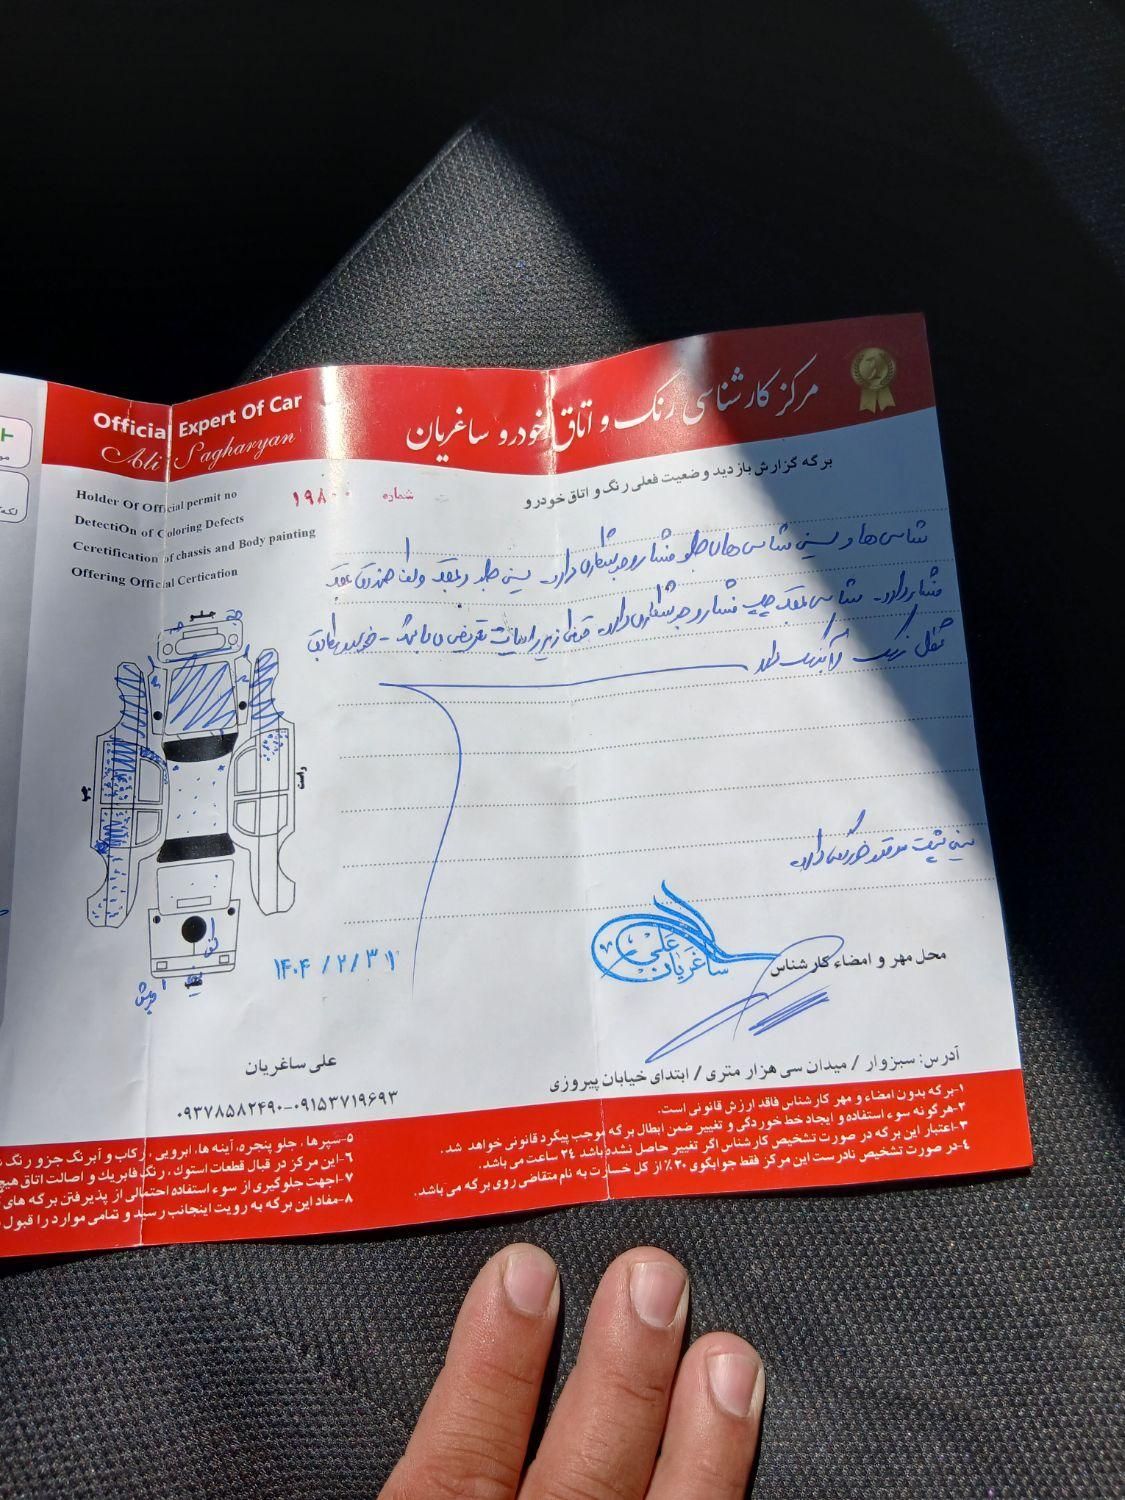 Official Expert Of Car
Ali Sagharyan
مرکز کارشناسی رنگ و اتاق خودرو ساغریان
برگه گزارش بازدید و وضعیت فعلی رنگ و اتاق خودرو
Holder Of Official permit no
شماره ۱۹۸۰۰
DetectiOn of Coloring Defects
Ceretification of chassis and Body painting
Offering Official Certication
شاسی ها و سینی شاسی های جلو فشار و جوشکاری دارد. سینی جلو و عقب و کف صندوق عقب
فشار دارد. شاسی عقب چپ فشار و جوشکاری دارد.
جلو
چپ
راست
عقب
۱۴۰۴/۲/۳۱
علی ساغریان
محل مهر و امضاء کارشناس
علی ساغریان
۰۹۳۷۸۵۸۲۴۹۰-۰۹۱۵۳۷۱۹۶۹۳
آدرس: سبزوار / میدان سی هزار متری / ابتدای خیابان پیروزی
۱-برگه بدون امضاء و مهر کارشناس فاقد ارزش قانونی است.
۲-هرگونه سوء استفاده و ایجاد خط خوردگی و تغییر ضمن ابطال برگه موجب پیگرد قانونی خواهد شد.
۳-اعتبار این برگه در صورت تشخیص کارشناس اگر تغییر حاصل نشده باشد ۲۴ ساعت می باشد.
۴-در صورت تشخیص نادرست این مرکز فقط جوابگوی ۳۰٪ از کل خسارت به نام متقاضی روی برگه می باشد.
۵-سپرها، جلو پنجره، آینه ها، ابرویی، رکاب و آبرنگ جزو رنگ
۶-این مرکز در قبال قطعات استوک، رنگ فابریک و اصالت اتاق هیچ
۷-جهت جلوگیری از سوء استفاده احتمالی از پذیرفتن برگه های
۸-مفاد این برگه به رویت اینجانب رسید و تمامی موارد را قبول